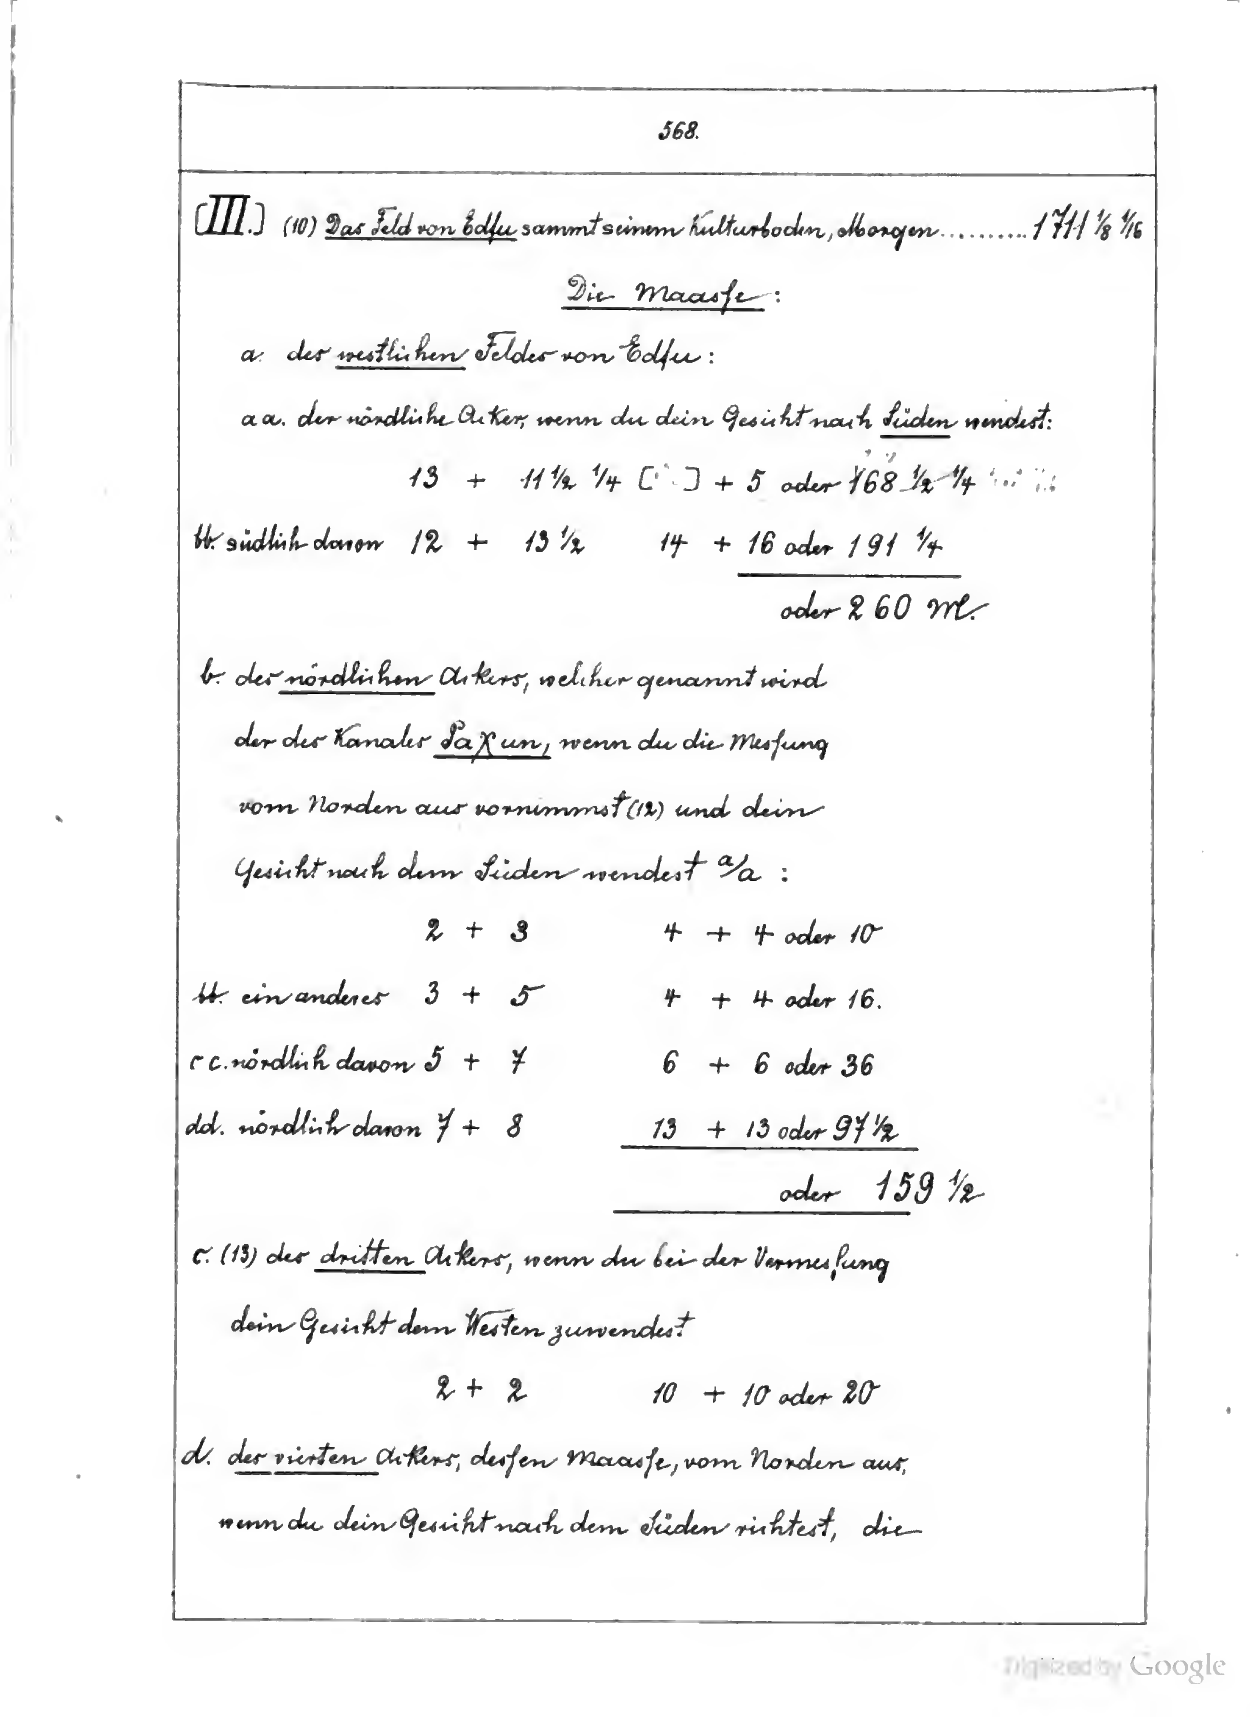 568.
[III.] (10) Das Feld von Edfu sammt seinem Kulturboden, Morgen .......... 1711 1/8 1/16
Die Maasse :
a. des westlichen Feldes von Edfu :
aa. der nördliche Acker, wenn du dein Gesicht nach Süden wendest:
13 + 11 1/2 1/4 [ ] + 5 oder 168 1/2 1/4
bb. südlich davon 12 + 13 1/2 14 + 16 oder 191 1/4
oder 260 M.
b. des nördlichen Ackers, welcher genannt wird
der des Kanales Saχun, wenn du die Messung
vom Norden aus vornimmst (12) und dein
Gesicht nach dem Süden wendest a/a :
2 + 3 4 + 4 oder 10
bb. ein anderes 3 + 5 4 + 4 oder 16.
cc. nördlich davon 5 + 7 6 + 6 oder 36
dd. nördlich davon 7 + 8 13 + 13 oder 97 1/2
oder 159 1/2
c. (13) des dritten Ackers, wenn du bei der Vermessung
dein Gesicht dem Westen zuwendest
2 + 2 10 + 10 oder 20
d. des vierten Ackers, dessen Maasse, vom Norden aus,
wenn du dein Gesicht nach dem Süden richtest, die
Digitized by Google